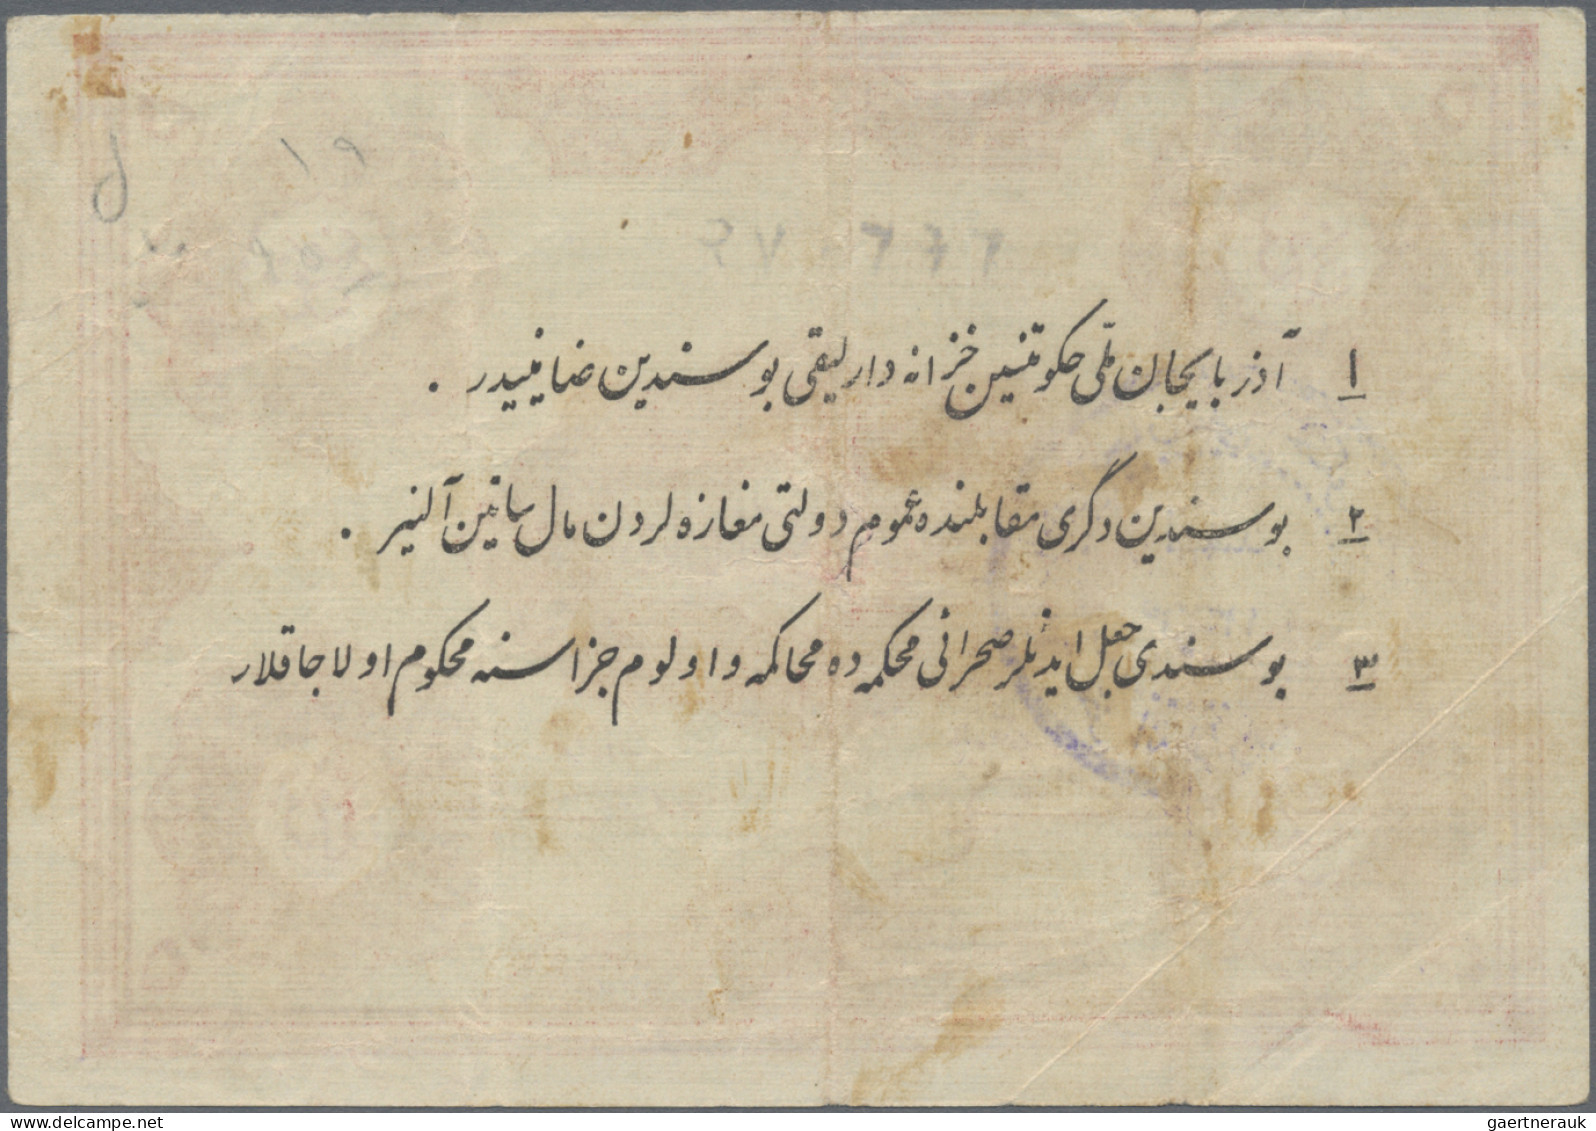 ۱ آذربایجان ملّی حکومتینین خزانه دارلیقی بوسندین ضامنیدیر .
۲ بوسندین دگری مقابلنده عموم دولتی مغازه لردن مال ساتین آلنیر .
۳ بوسندی جعل ایدنلر صحرائی محکمه ده محاکمه و اولوم جزاسنه محکوم اولاجاقلار
gaertnerauk